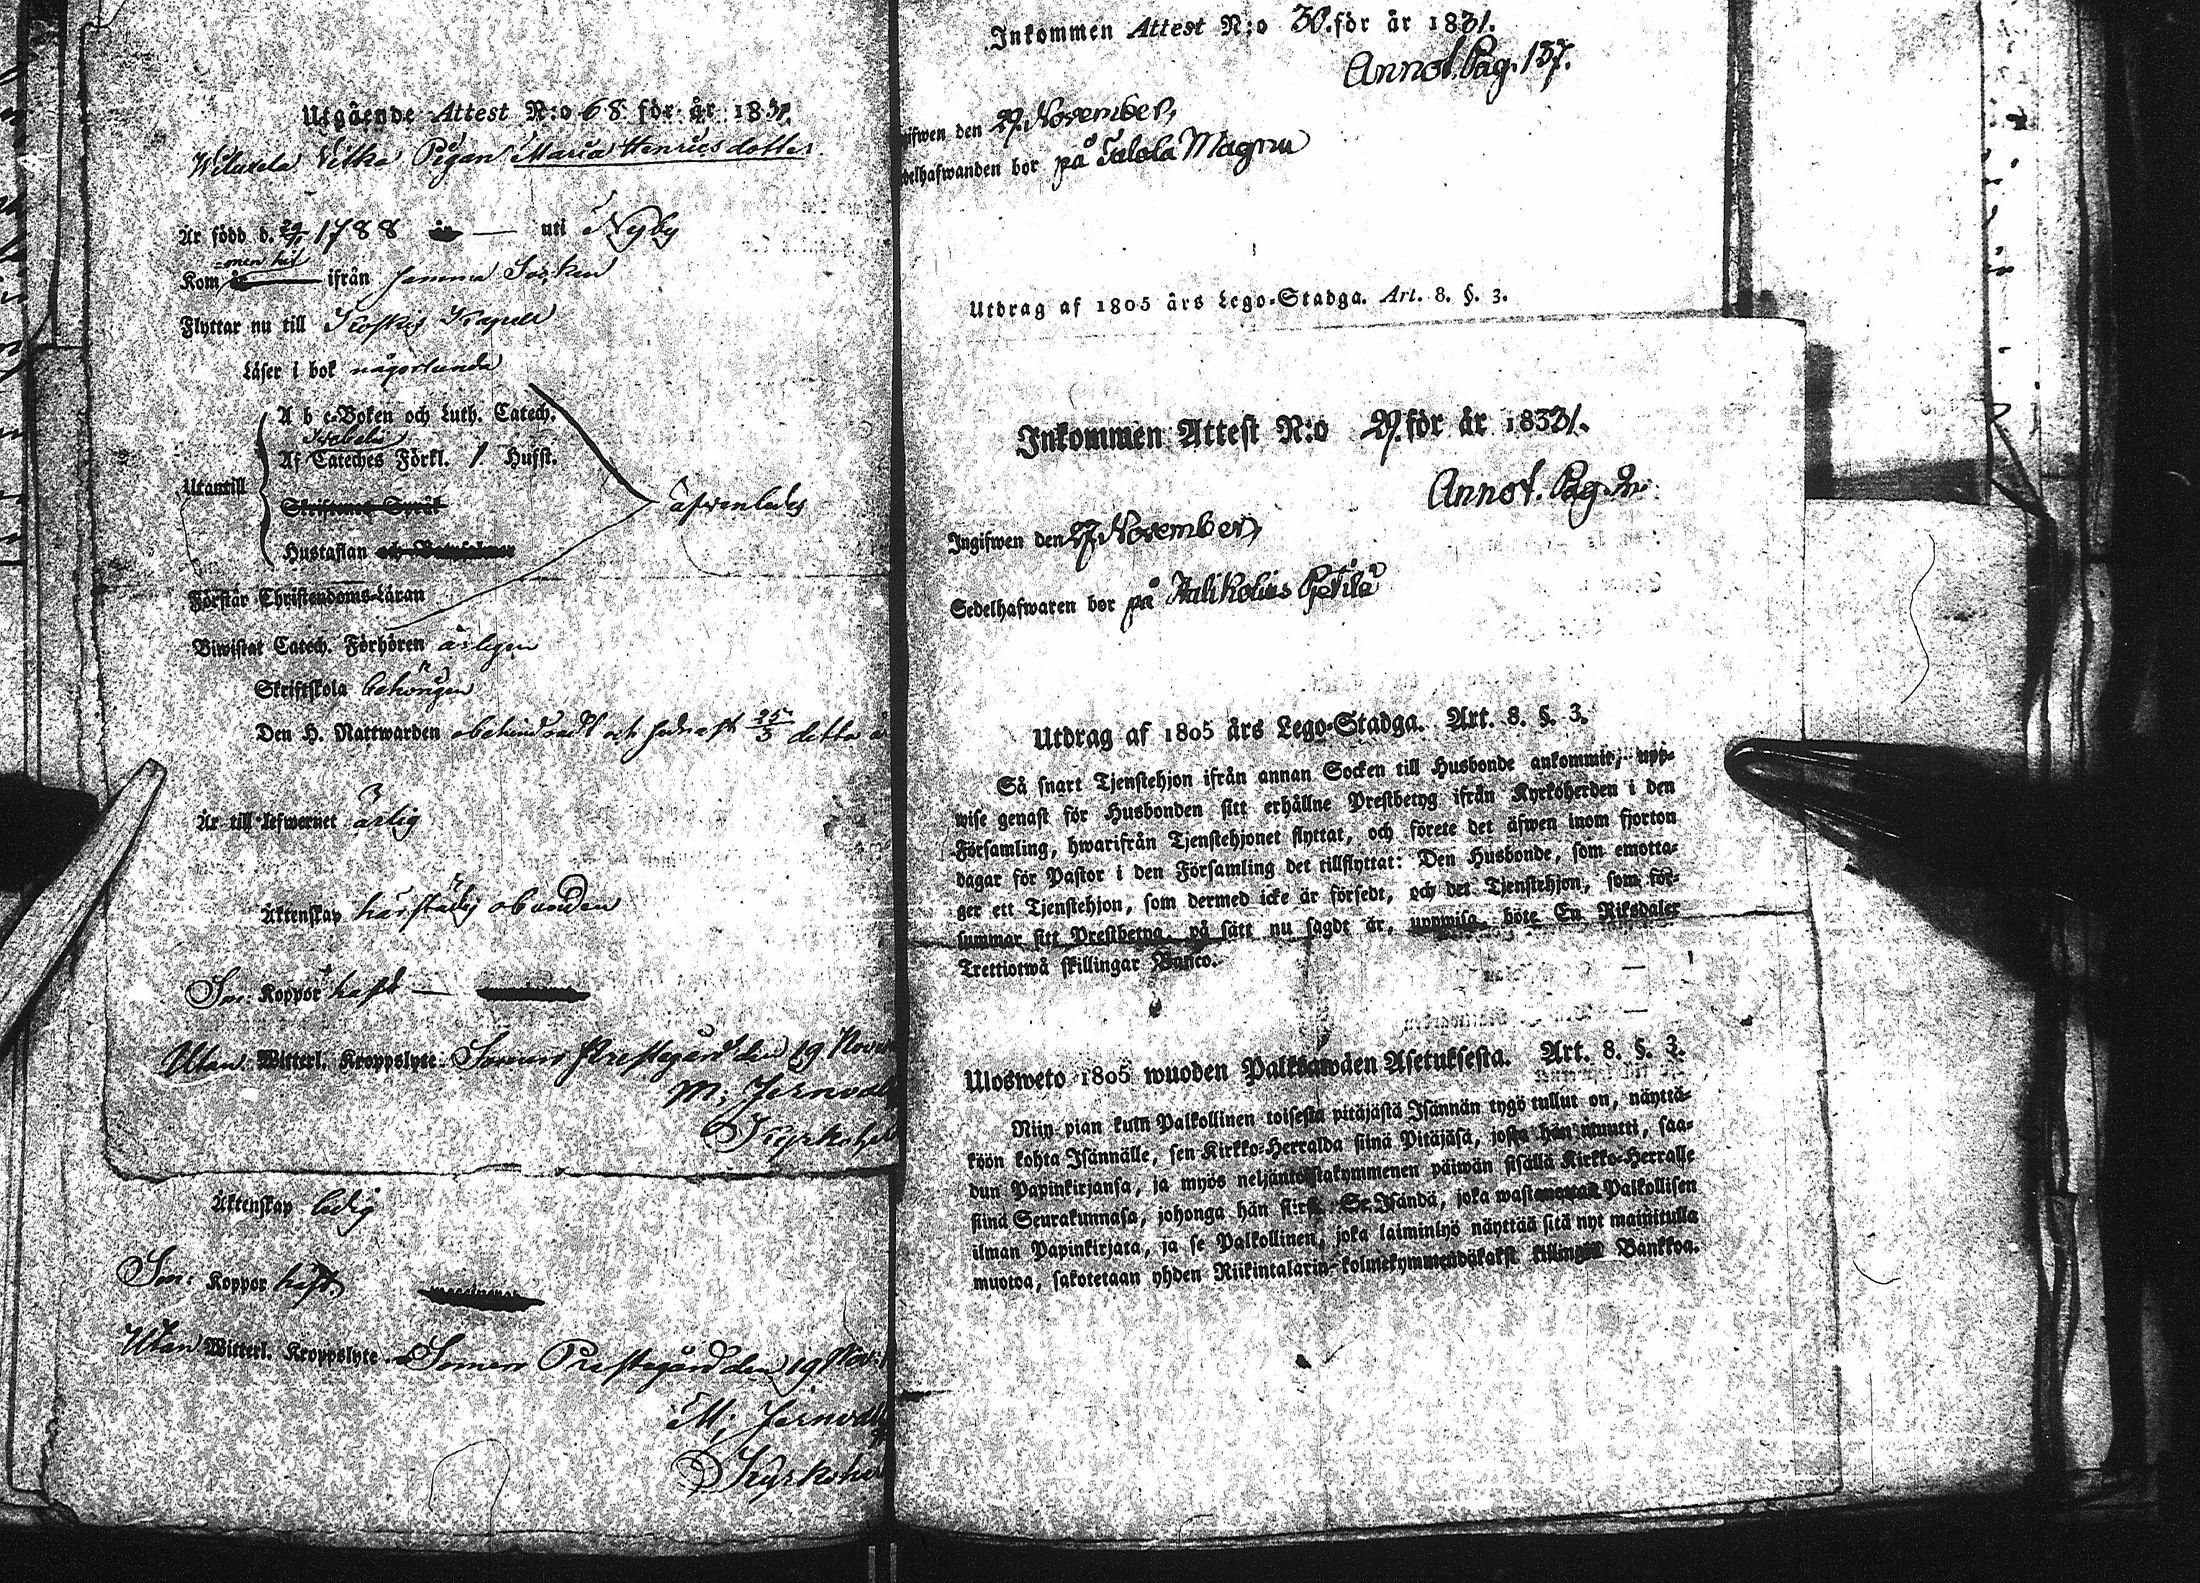 Utgående Attest N:o 68 för år 1831.
Pigan Maria Henricsdotter
Är född d. 1788 — uti Nyby
Kommen hit ifrån samma Socken
Flyttar nu till Koskis Kapell
Läser i bok någorlunda
A b c-Boken och Luth. Catech.
Af Svebelii Cateches Förkl. 1 Hufst.
Utantill
Skriftenes Språk
Hustaflan och
äfwenledes
Förstår Christendoms-Läran
Biwistat Catech. Förhören årligen
Skriftskola behörigen
Den H. Nattwarden obehindradt och sednast 25/3 detta å
Är till lefwernet ärlig
Äktenskap härstädes obunden
Son: Koppor haft —
Utan Witterl. Kroppslyte. Somero Prestegård den 19 Novem
M: Jernvall
Kyrkoher
Äktenskap ledig
Son: Koppor haft.
Utan Witterl. Kroppslyte. Somero Prestegård den 19 Nov:
M: Jernvall
Kyrkoher
Inkommen Attest N:o 30. för år 1831.
Annot. Pag. 137.
gifwen den 29. November,
delhafwanden bor på Talola Magnu
Utdrag af 1805 års Lego-Stadga. Art. 8. §. 3.
Inkommen Attest N:o 29. för år 1831.
Annot. Pag.
Ingifwen den 27 November,
Sedelhafwaren bor på
Utdrag af 1805 års Lego-Stadga. Art. 8. §. 3.
Så snart Tjenstehjon ifrån annan Socken till Husbonde ankommit, upp-
wise genast för Husbonden sitt erhållne Prestbetyg ifrån Kyrkoherden i den
Församling, hwarifrån Tjenstehjonet flyttat, och förete det äfwen inom fjorton
dagar för Pastor i den Församling det tillflyttat: Den Husbonde, som emotta-
ger ett Tjenstehjon, som dermed icke är försedt, och det Tjenstehjon, som för-
summar sitt Prestbetyg, på sätt nu sagdt är, uppwisa, böte En Riksdaler
Trettiotwå skillingar Banco.
Ulosweto 1805 wuoden Palkkawäen Asetuksesta. Art. 8. §. 3.
Niin pian kuin Palkollinen toisesta pitäjästä Isännän tygö tullut on, näyttä-
köön kohta Isännälle, sen Kirkko-Herralda siinä Pitäjäsä, josta hän muutti, saa-
dun Papinkirjansa, ja myös neljäntoistakymmenen päiwän sisällä Kirkko-Herralle
siinä Seurakunnasa, johonga hän siirsi. Se Isändä, joka wastanottaa Palkollisen
ilman Papinkirjata, ja se Palkollinen, joka laiminlyö näyttää sitä nyt mainitulla
muotoa, sakotetaan yhden Riikintalarin kolmekymmendäkaksi killingin Bankkoa.